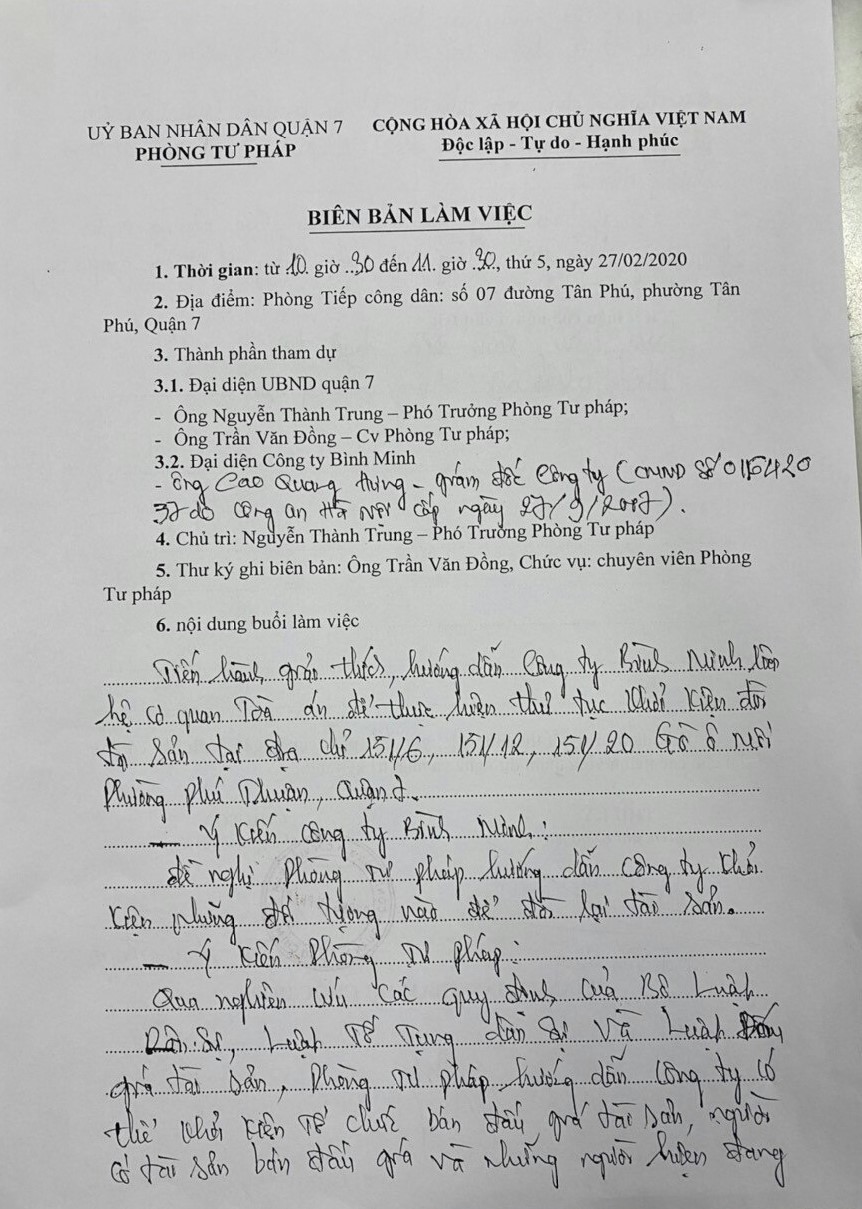 UỶ BAN NHÂN DÂN QUẬN 7
PHÒNG TƯ PHÁP
CỘNG HÒA XÃ HỘI CHỦ NGHĨA VIỆT NAM
Độc lập - Tự do - Hạnh phúc
BIÊN BẢN LÀM VIỆC
1. Thời gian: từ 10 giờ 30 đến 11 giờ 30, thứ 5, ngày 27/02/2020
2. Địa điểm: Phòng Tiếp công dân: số 07 đường Tân Phú, phường Tân
Phú, Quận 7
3. Thành phần tham dự
3.1. Đại diện UBND quận 7
- Ông Nguyễn Thành Trung – Phó Trưởng Phòng Tư pháp;
- Ông Trần Văn Đồng – Cv Phòng Tư pháp;
3.2. Đại diện Công ty Bình Minh
- Ông Cao Quang Hưng - giám đốc Công ty (CMND Số
do Công an Hà Nội cấp ngày 27/9/2007).
4. Chủ trì: Nguyễn Thành Trung – Phó Trưởng Phòng Tư pháp
5. Thư ký ghi biên bản: Ông Trần Văn Đồng, Chức vụ: chuyên viên Phòng
Tư pháp
6. nội dung buổi làm việc
Tiến hành giải thích, hướng dẫn Công ty Bình Minh liên
hệ cơ quan Toà án để thực hiện thủ tục khởi kiện đòi
tài sản tại địa chỉ 151/6, 151/12, 151/20 Gò Ô Môi
Phường Phú Thuận, Quận 7.
- Ý kiến Công ty Bình Minh:
đề nghị Phòng Tư pháp hướng dẫn Công ty khởi
kiện những đối tượng nào để đòi lại tài sản.
- Ý kiến Phòng Tư pháp:
Qua nghiên cứu các quy định của Bộ Luật
Dân sự, Luật Tố Tụng dân sự và Luật Đấu
giá tài sản, Phòng Tư pháp hướng dẫn Công ty có
thể khởi kiện Tổ chức bán đấu giá tài sản, người
có tài sản bán đấu giá và những người hiện đang